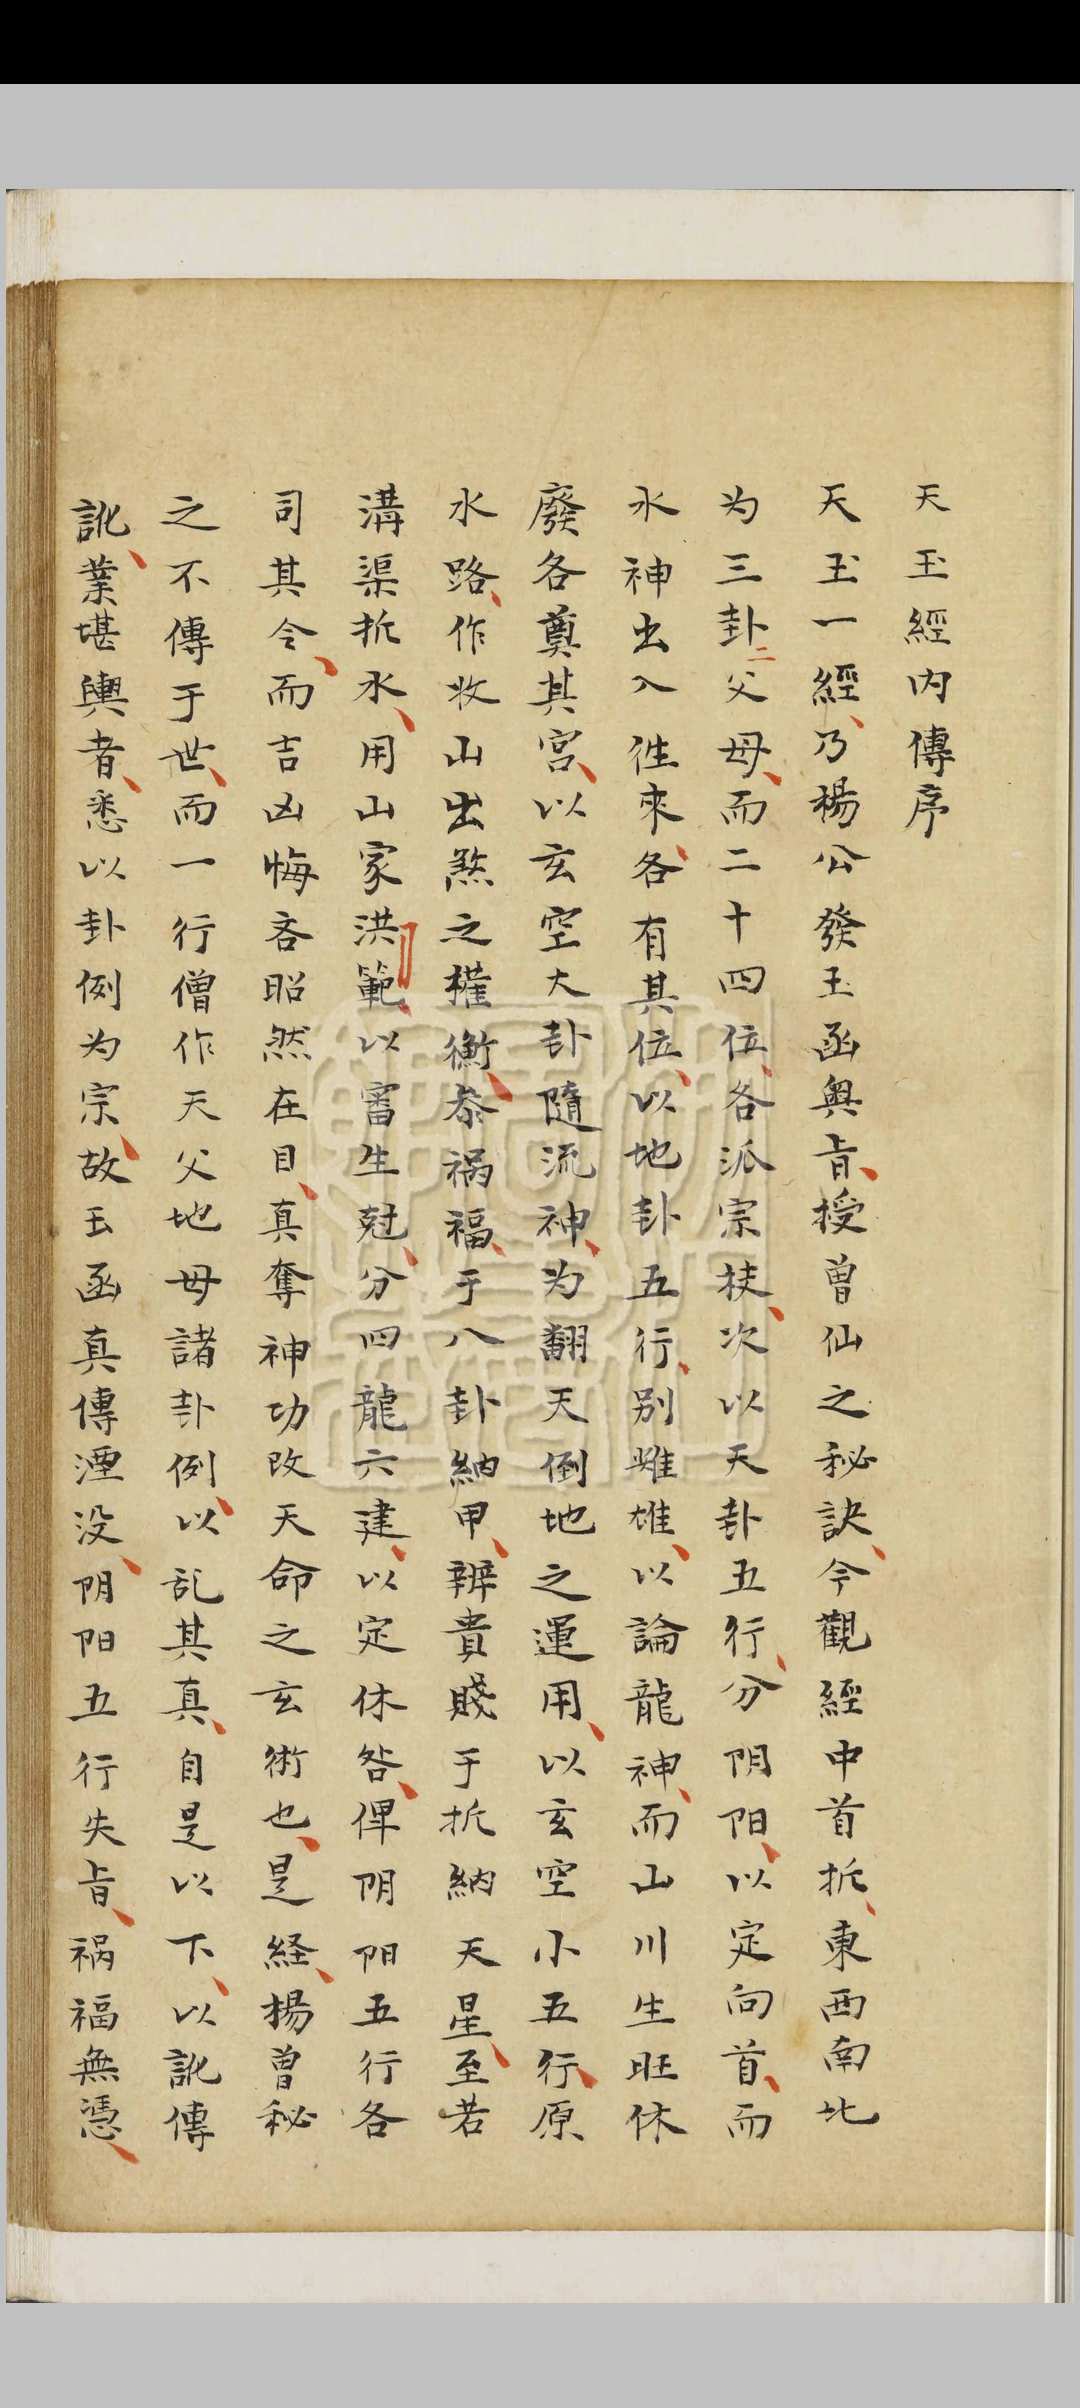 天玉經内傳序
天玉一經乃楊公發玉函奥旨授曾仙之秘訣今觀經中首拆東西南北
为三卦二父母而二十四位各派宗扶次以天卦五行分阴阳以定向首而
水神出入徃來各有其位以地卦五行别雌雄以論龍神而山川生旺休
廢各奠其宮以玄空大卦隨流神为翻天倒地之運用以玄空小五行原
水路作收山出煞之權衡叅祸福于八卦納甲辨貴賤于拆納天星至若
溝渠拆水用山家洪範以審生尅分四龍六建以定休咎俾阴阳五行各
司其令而吉凶悔吝昭然在目真奪神功改天命之玄術也是経楊曾秘
之不傳于世而一行僧作天父地母諸卦例以乱其真自是以下以訛傳
訛業堪輿者悉以卦例为宗故玉函真傳湮没阴阳五行失旨祸福無憑